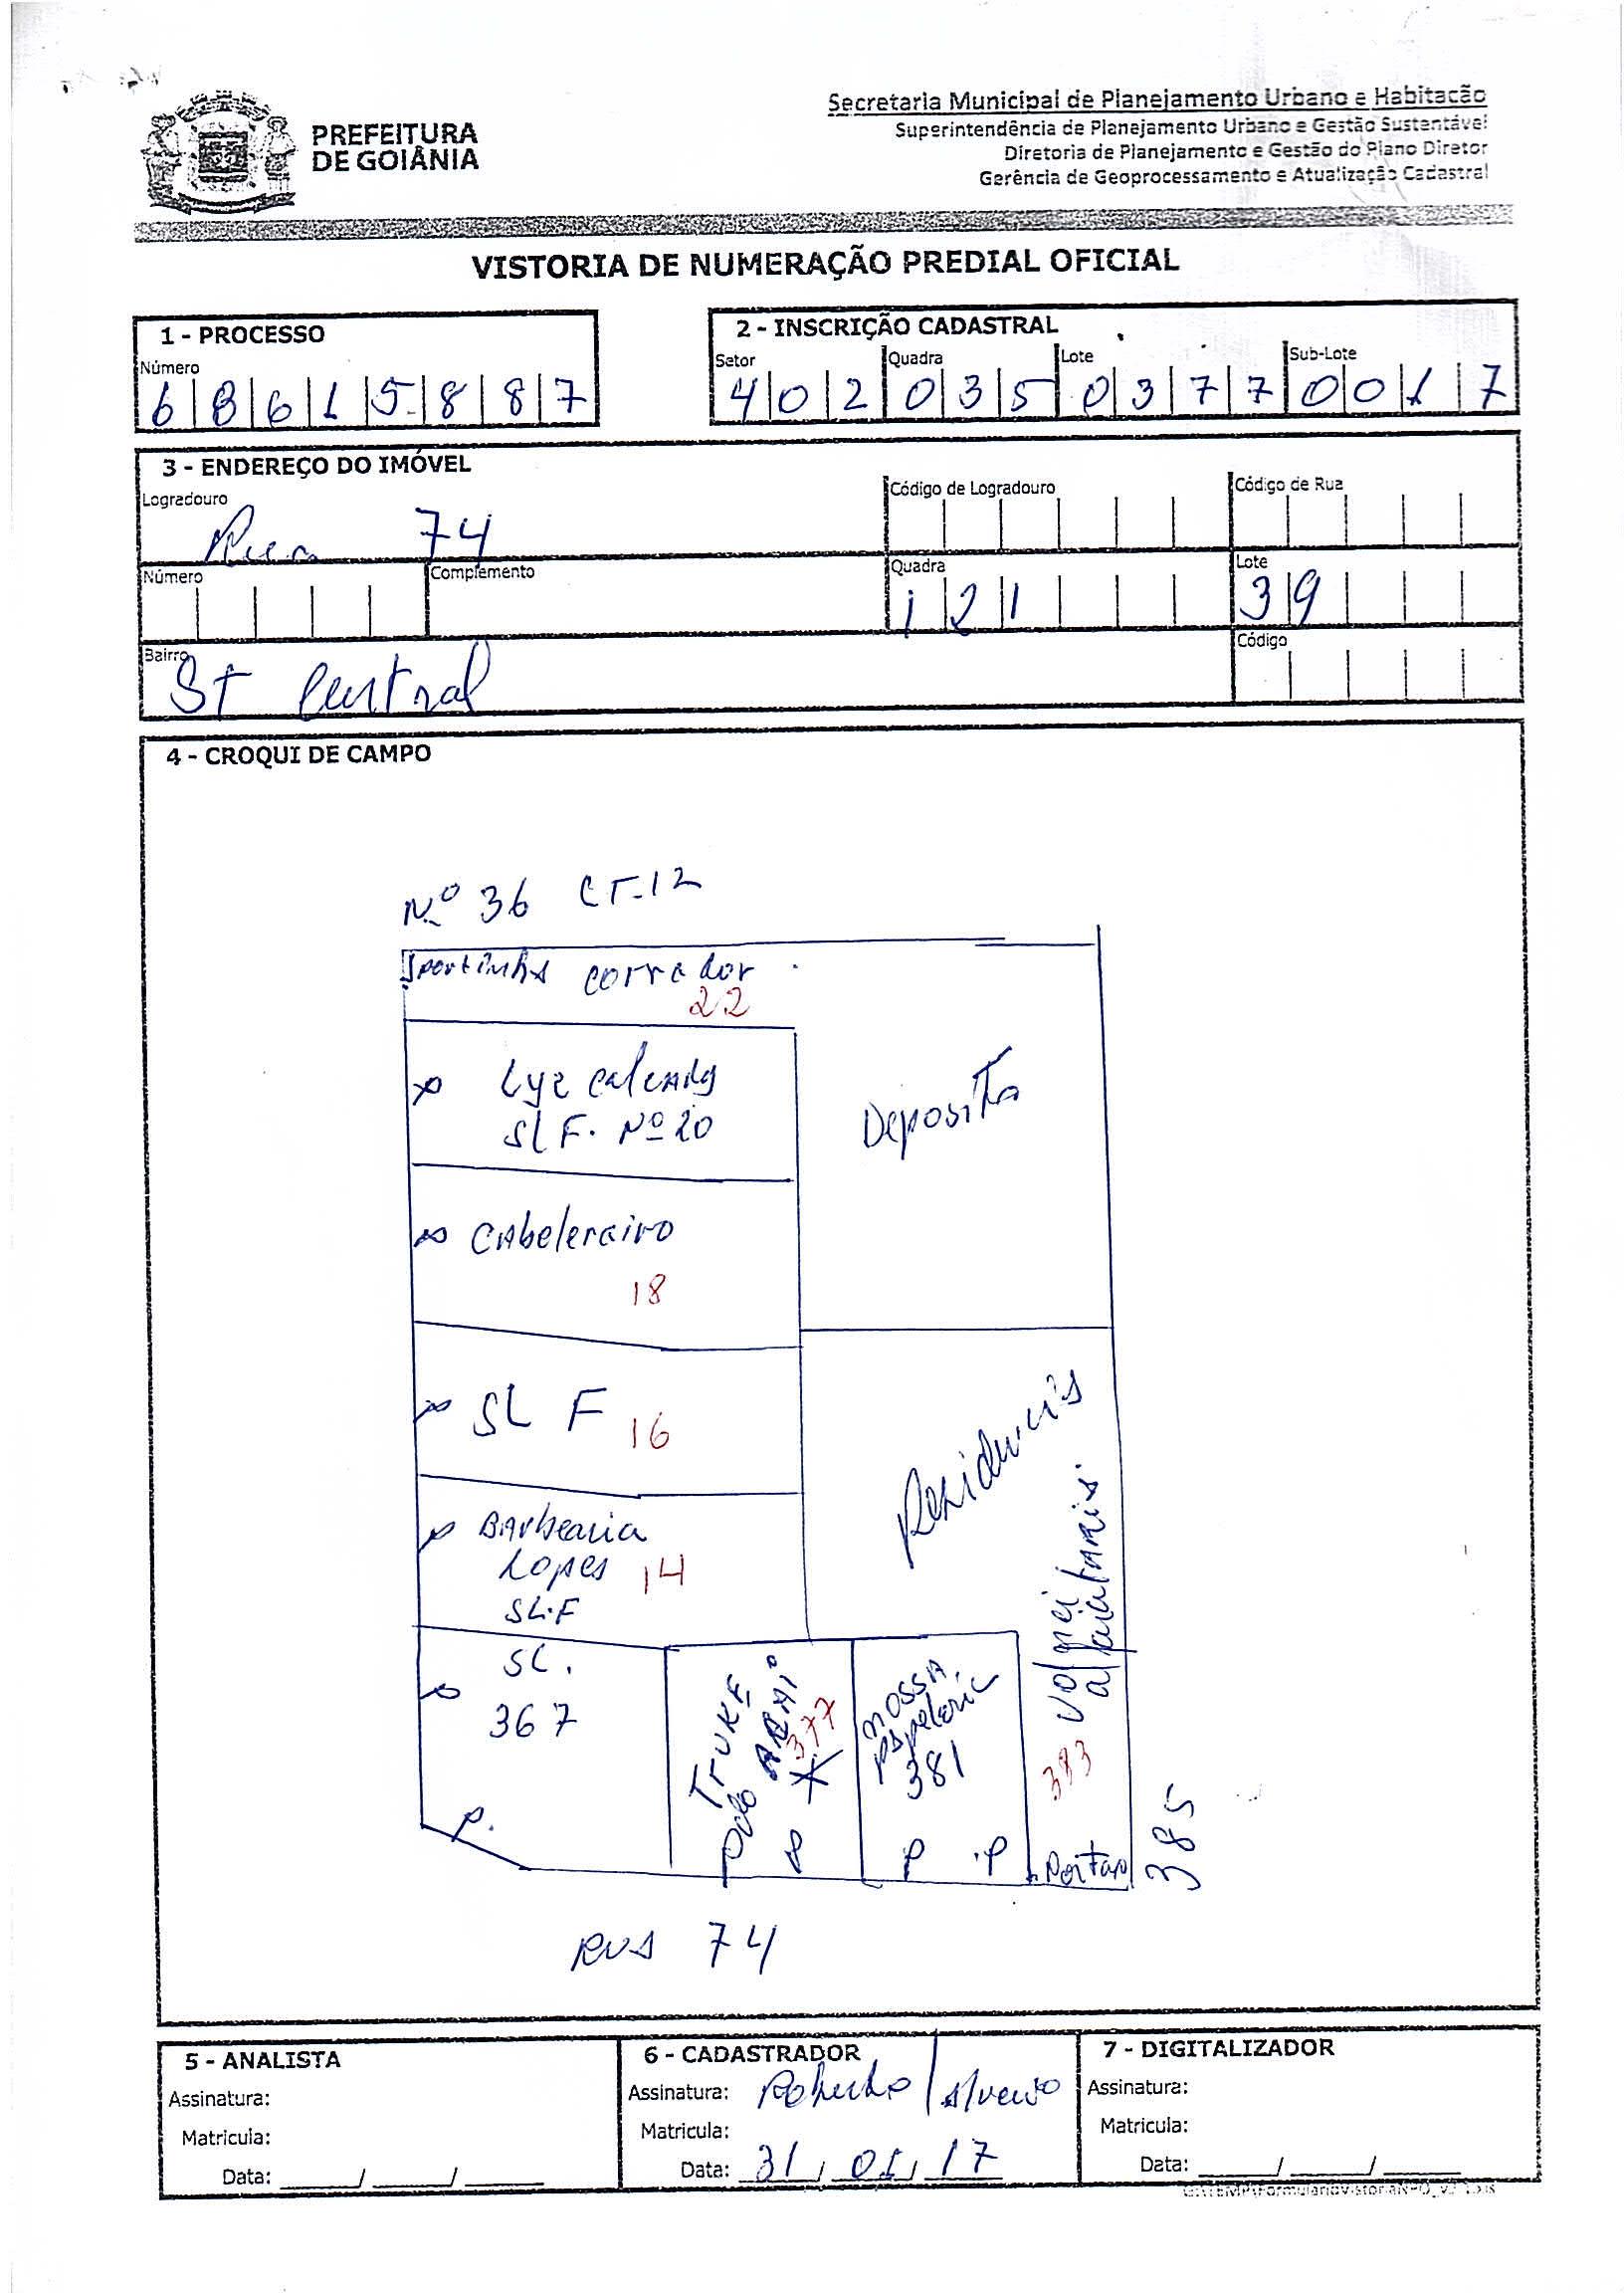 PREFEITURA
DE GOIÂNIA
Secretaria Municipal de Planejamento Urbano e Habitação
Superintendência de Planejamento Urbano e Gestão Sustentável
Diretoria de Planejamento e Gestão do Plano Diretor
Gerência de Geoprocessamento e Atualização Cadastral
VISTORIA DE NUMERAÇÃO PREDIAL OFICIAL
1 - PROCESSO
Número
6 8 6 1 5 8 8 7
2 - INSCRIÇÃO CADASTRAL
Setor Quadra Lote Sub-Lote
4 0 2 0 3 5 0 3 7 7 0 0 1 7
3 - ENDEREÇO DO IMÓVEL
Logradouro Código de Logradouro Código de Rua
Rua 74
Número Complemento Quadra Lote
1 2 1 3 9
Bairro Código
St Central
4 - CROQUI DE CAMPO
Nº 36 LT-12
portinha corredor
22
calçados
SL F. Nº 20
Deposito
Cabelerairo
18
SL F 16
Residencis
Barbearia
Lopes 14
SL.F
SL.
367
377
nossa
381
383
385
P.
P
P P
Portao
RUA 74
5 - ANALISTA
Assinatura:
Matricula:
Data: ____/____/____
6 - CADASTRADOR
Assinatura: Roberto /
Matricula:
Data: 31/01/17
7 - DIGITALIZADOR
Assinatura:
Matricula:
Data: ____/____/____